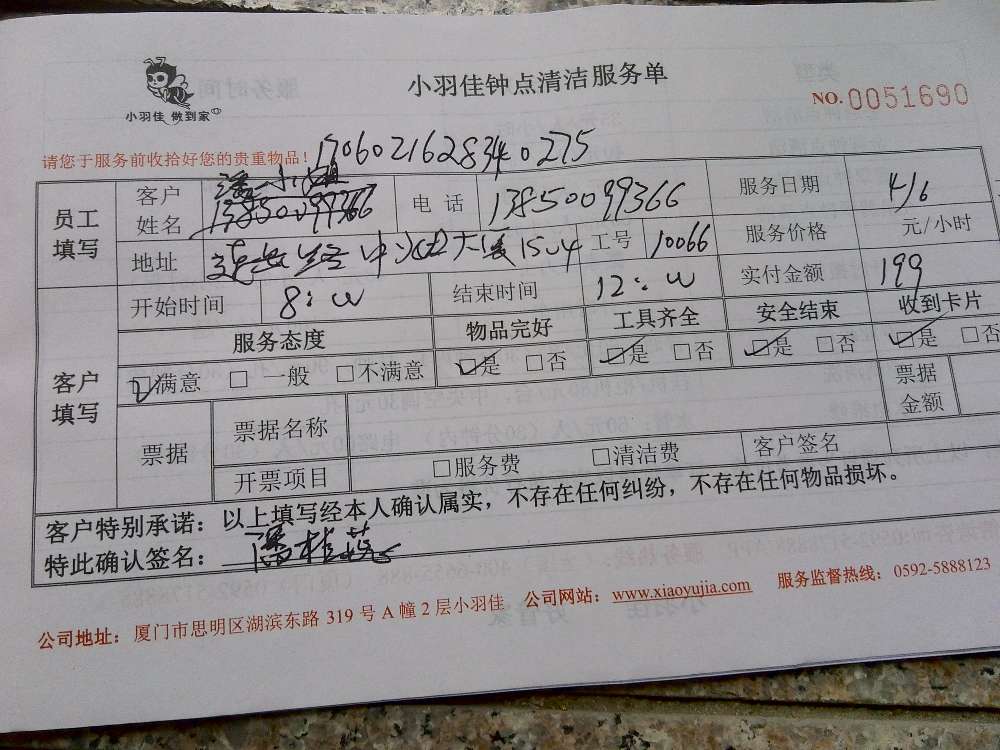 小羽佳 做到家
小羽佳钟点清洁服务单
NO.0051690
请您于服务前收拾好您的贵重物品!
170602162834 0275
员工填写 客户姓名 13850097366 电话 13850099366 服务日期 4/6
地址 中 大厦1504 工号 10066 服务价格 元/小时
客户填写 开始时间 8:00 结束时间 12:00 实付金额 199
服务态度 物品完好 工具齐全 安全结束 收到卡片
☑满意 □一般 □不满意 ☑是 □否 ☑是 □否 ☑是 □否 ☑是 □否
票据 票据名称 票据金额
开票项目 □服务费 □清洁费 客户签名
客户特别承诺：以上填写经本人确认属实，不存在任何纠纷，不存在任何物品损坏。
特此确认签名：
公司地址：厦门市思明区湖滨东路 319 号 A 幢 2 层小羽佳 公司网站：www.xiaoyujia.com 服务监督热线：0592-5888123